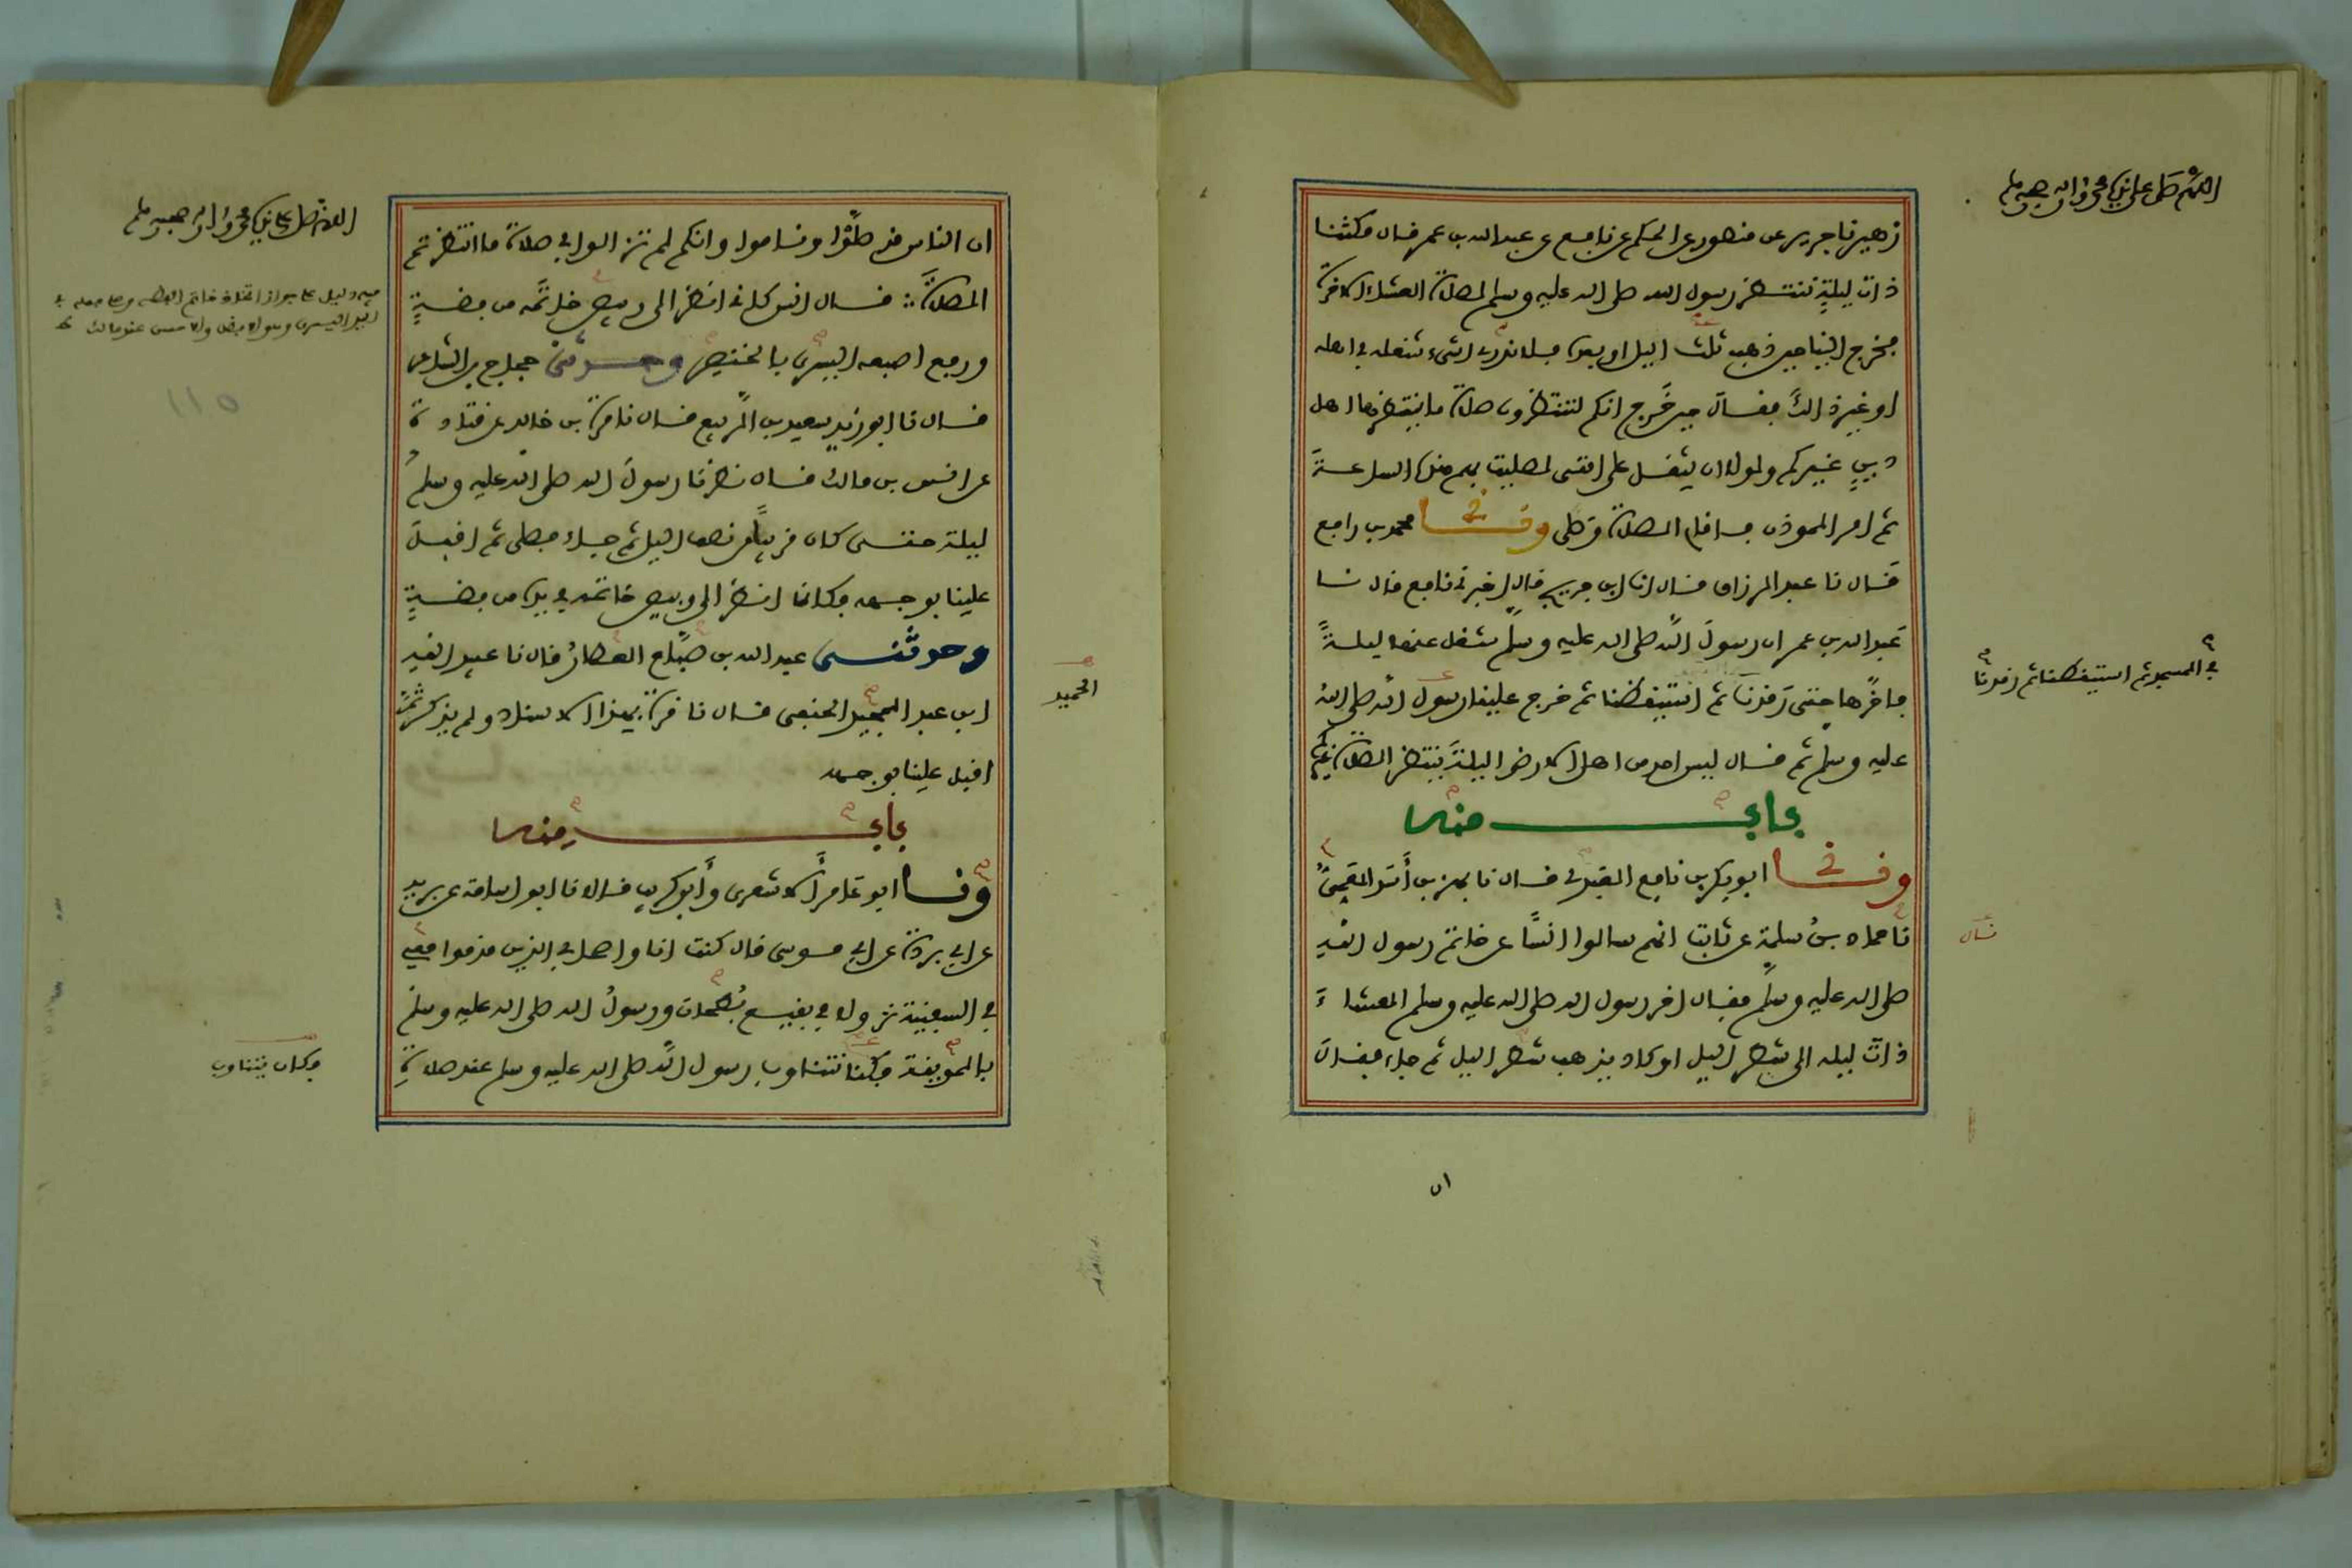 اللهم صل على نبيك محمد واله وصحبه وسلم
زهير نا جرير عن منصور عن الحكم عن نافع عن عبد الله بن عمر قال مكثنا
ذات ليلة ننتظر رسول الله صلى الله عليه وسلم لصلاة العشاء الاخرة
فخرج الينا حين ذهب ثلث اليل او بعده فلا ندري اشيء شغله في اهله
او غير ذالك فقال حين خرج انكم لتنتظرون صلاة ما ينتظرها اهل
دين غيركم ولولا ان يثقل على امتي لصليت بهم هذه الساعة
ثم امر الموذن فاقام الصلاة وصلى وثني محمد بن رافع
قال نا عبد الرزاق قال انا ابن جريج قال اخبرني نافع قال نا
عبد الله بن عمر ان رسول الله صلى الله عليه وسلم شغل عنها ليلة
فاخرها حتى رقدنا ثم استيقظنا ثم خرج علينا رسول الله صلى الله
في المسجد ثم استيقظنا ثم رقدنا
عليه وسلم ثم قال ليس احد من اهل الارض اليلة ينتظر الصلاة غيركم
باب منه
وثني ابو بكر بن نافع العبدي قال نا بهز بن أسد العمي
نا حماد بن سلمة عن ثابت انهم سالوا انسا عن خاتم رسول الله
قال
صلى الله عليه وسلم فقال اخر رسول الله صلى الله عليه وسلم العشاء
ذات ليلة الى شطر اليل او كاد يذهب شطر اليل ثم جاء فقال
ان
اللهم صل على نبيك محمد واله وصحبه وسلم
ان الناس قد صلوا وناموا وانكم لم تزالوا في صلاة ما انتظرتم
الصلاة قال انس كاني انظر الى وبيص خاتمه من فضة
فيه دليل على جواز اتخاذ خاتم الفضة وعلى جعله في
اليد اليسرى
ورفع اصبعه اليسرى بالخنصر وحدثني حجاج بن الشاعر
١١٥
قال نا ابو زيد سعيد بن الربيع قال نا قرة بن خالد عن قتادة
عن انس بن مالك قال نظرنا رسول الله صلى الله عليه وسلم
ليلة حتى كان قريبا من نصف اليل ثم جاء فصلى ثم اقبل
علينا بوجهه فكانما انظر الى وبيص خاتمه في يده من فضة
وحدثني عبد الله بن صباح العطار قال نا عبيد الله
ابن عبد المجيد الحنفي قال نا قرة بهذا الاسناد ولم يذكر ثم
الحميد
اقبل علينا بوجهه
باب منه
ونا ابو عامر الاشعري وأبو كريب قالا نا ابو اسامة عن بريد
عن ابي بردة عن ابي موسى قال كنت انا واصحابي الذين قدموا معي
في السفينة نزولا في بقيع بطحان ورسول الله صلى الله عليه وسلم
بالمدينة فكنا نتناوب رسول الله صلى الله عليه وسلم عند صلاة
فكان يتناوب